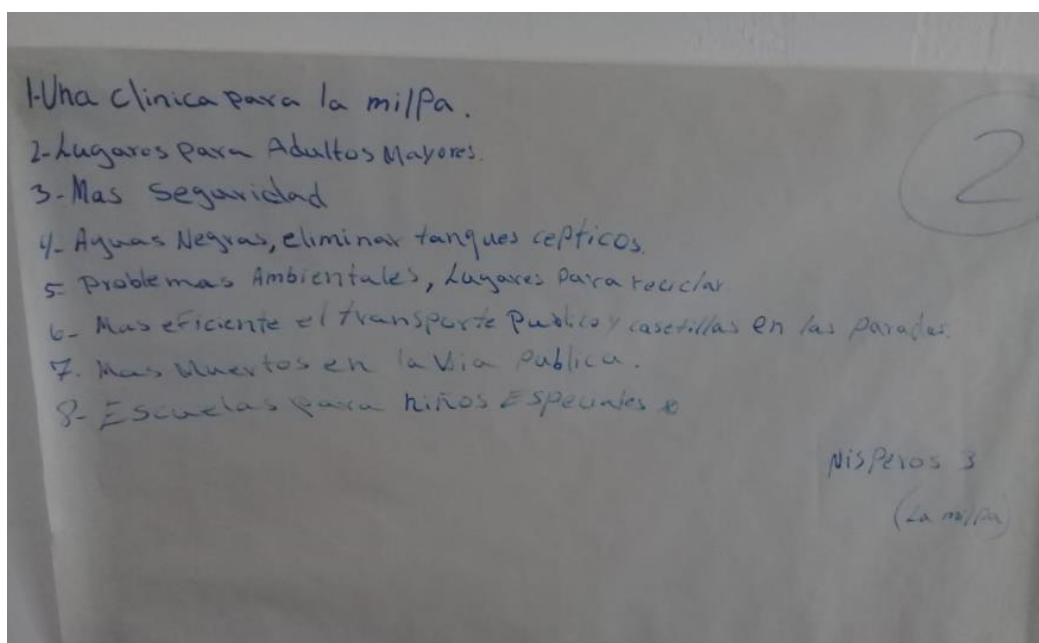 1-Una clinica para la milpa.
2
2-Lugares para Adultos Mayores.
3-Mas seguridad
4- Aguas Negras, eliminar tanques cepticos.
5- Problemas Ambientales, Lugares para reciclar
6- Mas eficiente el transporte Publico y casetillas en las paradas.
7. Mas Muertos en la Via Publica.
8- Escuelas para niños Especiales
Nisperos 3
(La milpa)